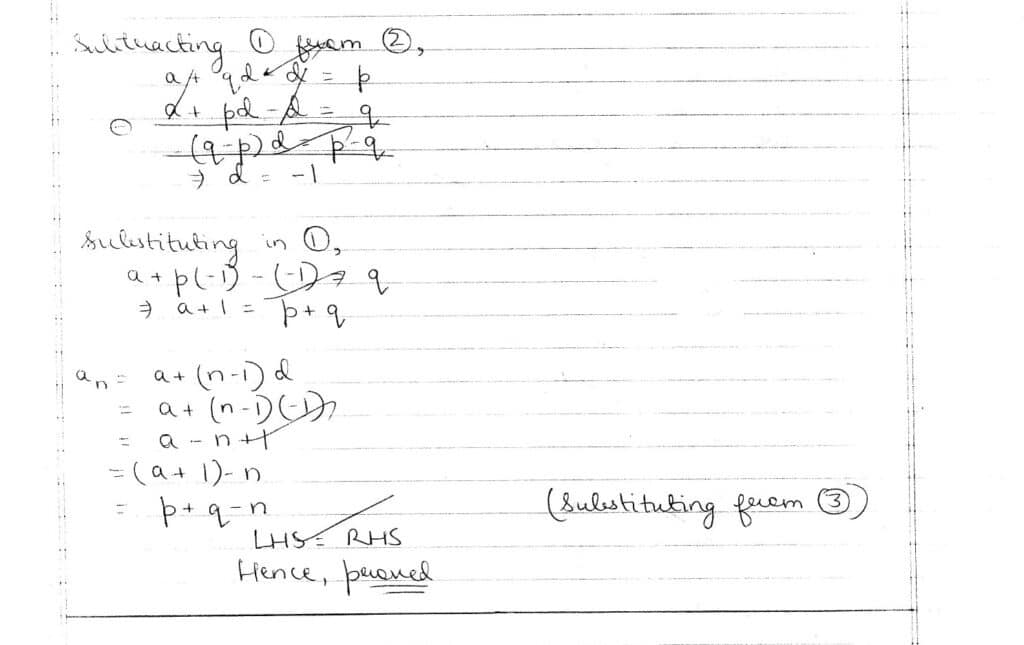 Subtracting ① from ②,
a + qd - d = p
a + pd - d = q
⊖
(q-p) d = p-q
⇒ d = -1
Substituting in ①,
a + p(-1) - (-1) = q
⇒ a + 1 = p + q
aₙ = a + (n-1) d
= a + (n-1)(-1)
= a - n + 1
= (a + 1) - n
= p + q - n (Substituting from ③)
LHS = RHS
Hence, proved